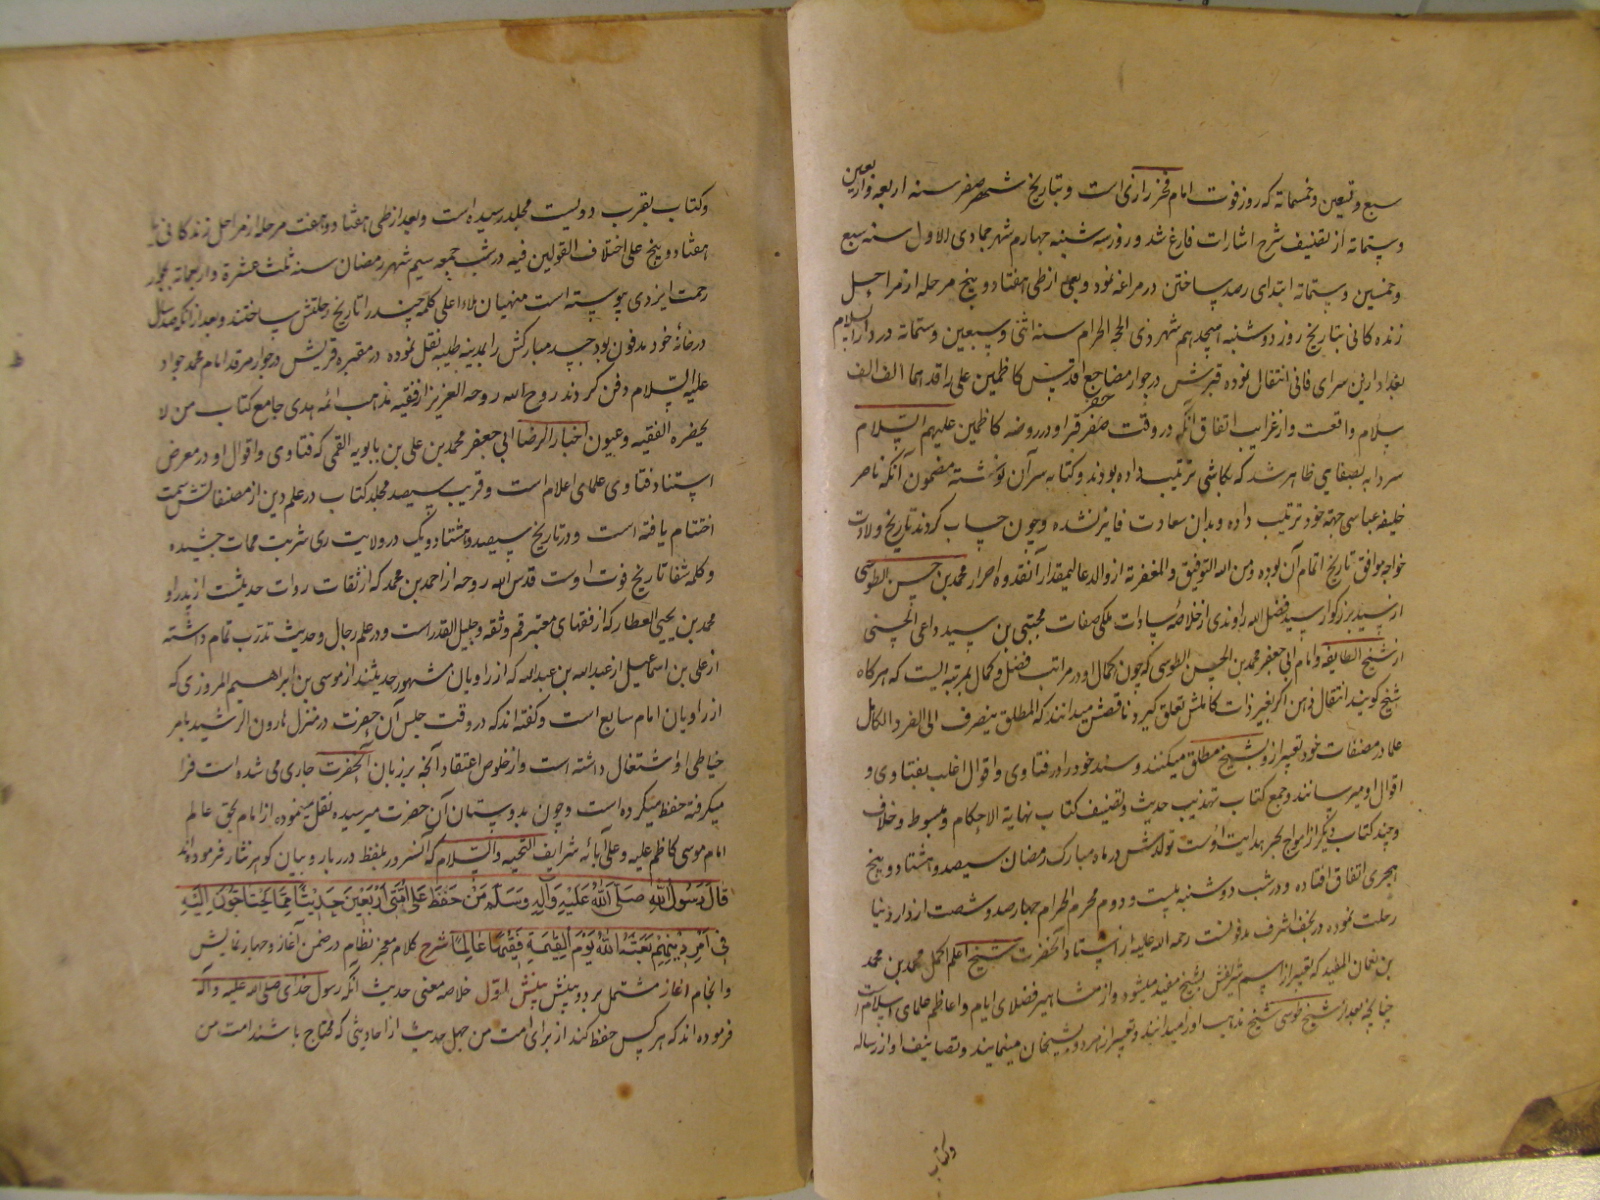 سبع و تسعین و خمسمائة که روز فوت امام فخر رازی است و بتاریخ شهر صفر سنه اربعه و اربعین
و ستمائة از تصنیف شرح اشارات فارغ شد و روز سه شنبه چهارم شهر جمادی الاول سنه سبع
و خمسین و ستمائة ابتدای رصد ساختن در مراغه نمود و بعد از طی هفتاد و پنج مرحله از مراحل
زنده کانی بتاریخ روز دوشنبه هیجدهم شهر ذی الحجة الحرام سنه اثنی و سبعین و ستمائة در دار السلام
بغداد ازین سرای فانی انتقال نموده قبرش در جوار مضاجع اقدس کاظمین علی راقدهما الف الف
سلام واقعست و از غرایب اتفاق آنکه در وقت حفر قبر او در روضه کاظمین علیهم السلام
سردابه بصفایی ظاهر شد که بکاشی ترتیب داده بودند و کتابه سرآن نوشته مضمون آنکه ناصر
خلیفه عباسی جهة خود ترتیب داده و بدان سعادت فایز نشده و چون حساب کردند تاریخ ولادت
خواجه موافق تاریخ اتمام آن بوده و من الله التوفیق و المغفرة از والد عالیمقدار آنقدوه احرار محمد بن حسن الطوسی
از سید بزرکوار سید فضل الله راوندی از خلاصه سادات ملکی صفات مجتبی بن سید داعی الحسنی
از شیخ الطایفه و امام ابی جعفر محمد بن الحسن الطوسی که چون کمال او در مراتب فضل و کمال بمرتبه ایست که هرکاه
شیخ کویند انتقال ذهن اکر بغیر ذات کاملش تعلق کیرد ناقصش میدانند که المطلق ینصرف الی الفرد الکامل
علما در مصنفات خود تعبیر ازو بشیخ مطلق میکنند و سند خود را در فتاوی و اقوال اغلب بفتاوی و
اقوال او میرسانند و جمع کتاب تهذیب حدیث و تصنیف کتاب نهایة الاحکام و مبسوط و خلاف
و چند کتاب دیکر از امواج بحر هدایت اوست تولدش در ماه مبارک رمضان سیصد و هشتاد و پنج
هجری اتفاق افتاده و در شب دوشنبه بیست و دوم محرم الحرام چهارصد و شصت از دار دنیا
رحلت نموده در نجف اشرف مدفونست رحمه الله علیه از استاد آنحضرت شیخ اعلم اکمل محمد بن محمد
بن نعمان المفید که تعبیر از اسم شریفش بشیخ مفید میشود و از مشاهیر فضلای ایام و اعاظم علمای اسلامست
چنانچه بعد از شیخ طوسی شیخ مذهب او را میدانند و تعبیر از هر دو بشیخان مینمایند و تصانیف او از رساله
و کتاب
و کتاب بقرب دویست مجلد رسیده است و بعد از طی هفتاد و هفت مرحله از مراحل زندکانی یا
هفتاد و پنج علی اختلاف القولین فیه در شب جمعه سیم شهر رمضان سنه ثلث عشرة و اربعمائة بجوار
رحمت ایزدی پیوسته است منهیان ملاء اعلی کلمه چند را تاریخ رحلتش ساختند و بعد از آنکه چند سال
در خانهٔ خود مدفون بود جسد مبارکش را بمدینه طیبه نقل نموده در مقبره قریش در جوار مرقد امام محمد جواد
علیه السلام دفن کردند روح الله روحه العزیز از فقیه مذهب ائمه هدی جامع کتاب من لا
یحضره الفقیه و عیون اخبار الرضا ابی جعفر محمد بن علی بن بابویه القمی که فتاوی و اقوال او در معرض
استناد فتاوی علمای اعلام است و قریب سیصد مجلد کتاب در علم دین از مصنفاتش سمت
اختتام یافته است و در تاریخ سیصد و هشتاد و یک در ولایت ری شربت ممات چشیده
و کلمه شفا تاریخ فوت اوست قدس الله روحه از احمد بن محمد که از ثقات روات حدیثست از پدر او
محمد بن یحیی العطار که از فقهای معتبر قم و ثقه و جلیل القدر است و در علم رجال و حدیث تدرب تمام داشته
از علی بن اسماعیل از عبدالله بن عبدالله که از راویان مشهور حدیثند از موسی بن ابراهیم المروزی که
از راویان امام سابع است و کفته اند که در وقت حبس آن حضرت در منزل هارون الرشید بامر
خیاطی او اشتغال داشته است و از خلوص اعتقاد آنچه بر زبان آنحضرت جاری می شده است فرا
میکرفته حفظ میکرده است و چون بدوستان آن حضرت میرسیده نقل مینموده از امام بحق عالم
امام موسی کاظم علیه و علی آبائه شرایف التحیه و السلام که آنسرور بلفظ درربار و بیان کوهر نثار فرموده اند
قال رسول الله صلی الله علیه و آله وسلم من حفظ علی امتی اربعین حدیثا مما یحتاجون الیه
فی امر دینهم بعثه الله یوم القیمة فقیها عالما شرح کلام معجز نظام در ضمن آغاز و چهار نمایش
و انجام آغاز مشتمل بر دو بینش بینش اول خلاصه معنی حدیث آنکه رسول خدای صلی الله علیه و آله
فرموده اند که هر کس حفظ کند از برای امت من چهل حدیث از احادیثی که محتاج باشند امت من